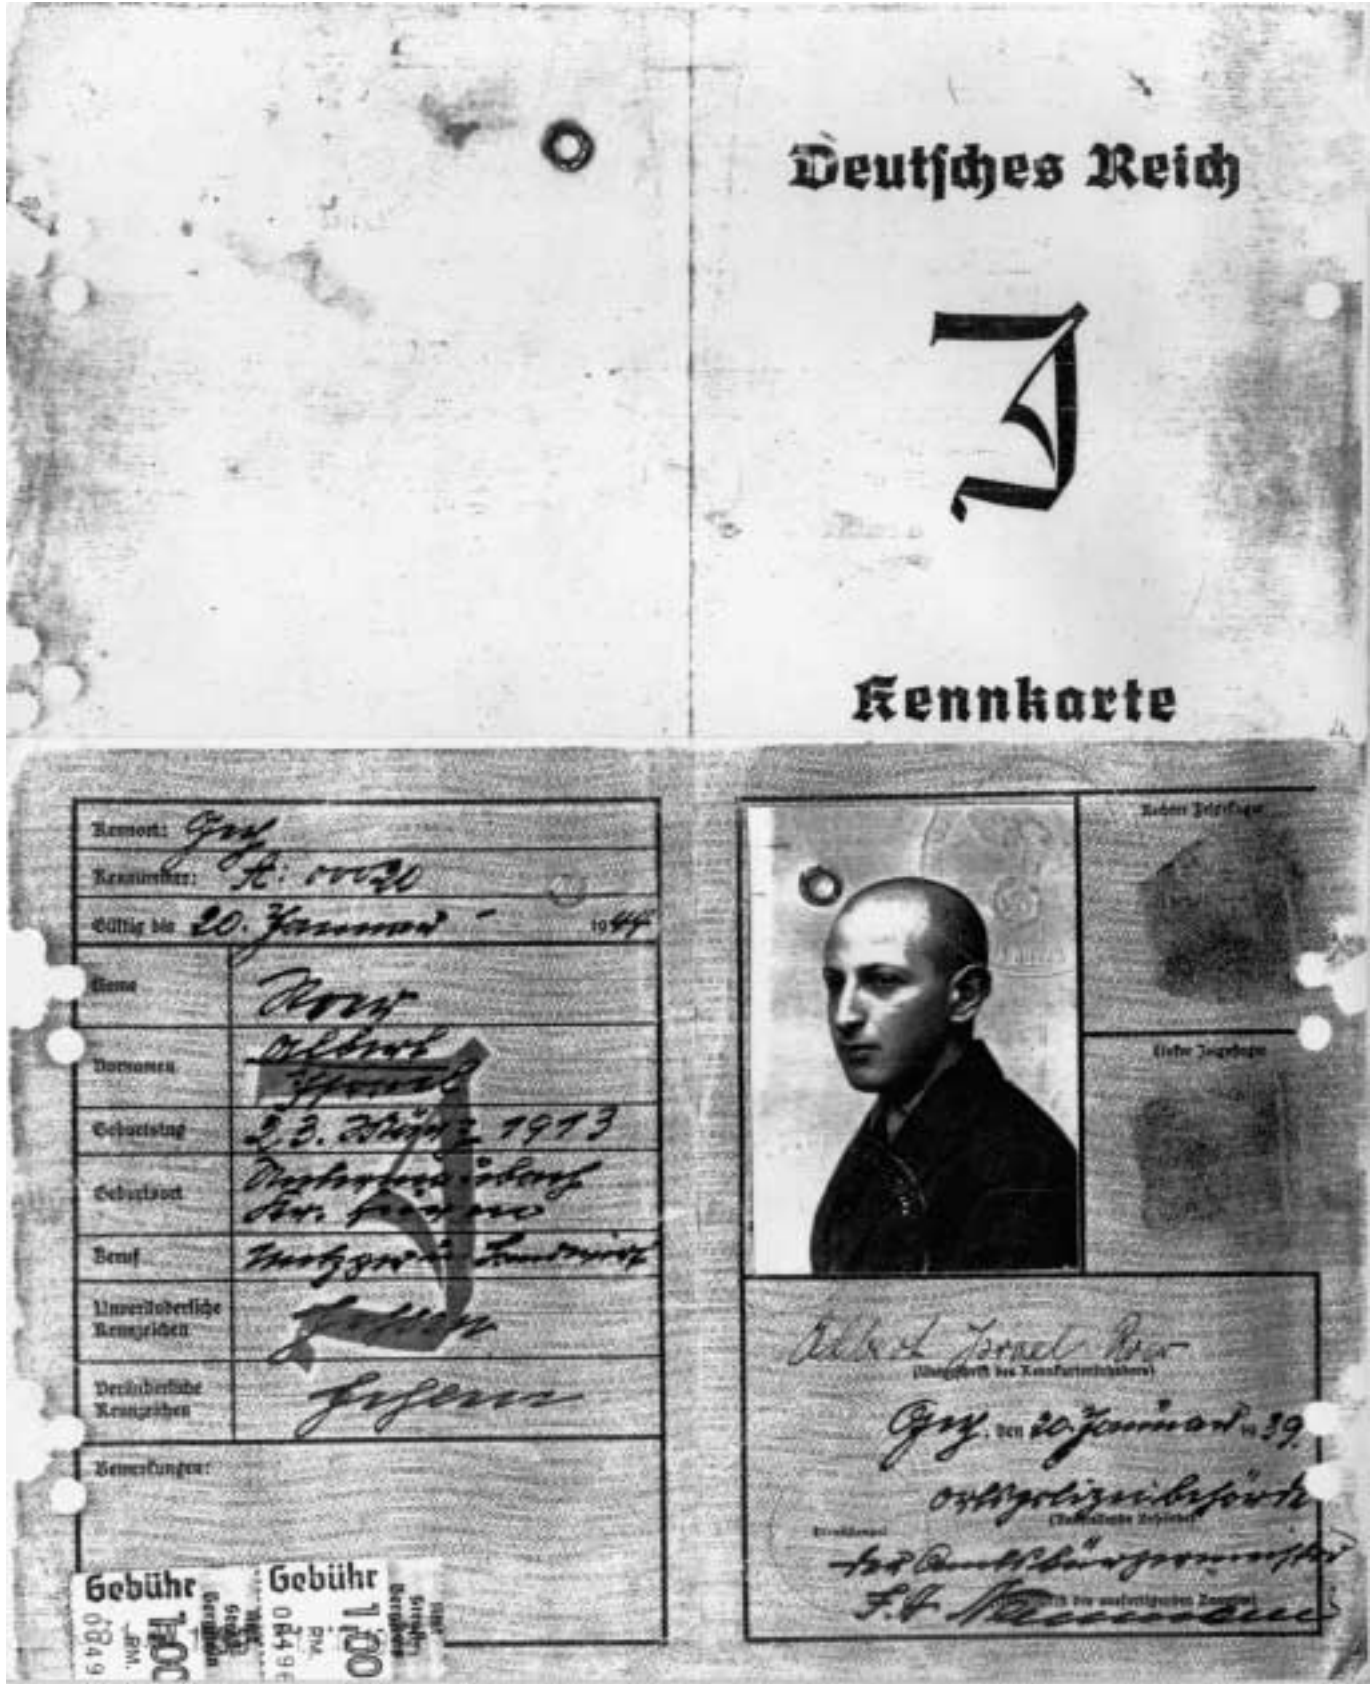 Deutsches Reich
J
Kennkarte
Kennort: Gey
Kennummer: A: 00020
Gültig bis 20. Januar 1944
Name Roer
Vornamen Albert
Israel
Geburtstag 23. März 1913
Geburtsort
Kr. Düren
Beruf Metzger u. Landwirt
Unveränderliche
Kennzeichen fehlen
Veränderliche
Kennzeichen fehlen
Bemerkungen:
Gebühr
RM.
1,00
0849
Gebühr
RM.
1,00
Rechter Zeigefinger
Linker Zeigefinger
Albert Israel Roer
(Unterschrift des Kennkarteninhabers)
Gey, den 20. Januar 1939.
Ortspolizeibehörde
(Ausstellende Behörde)
Dienststempel
der Amtsbürgermeister